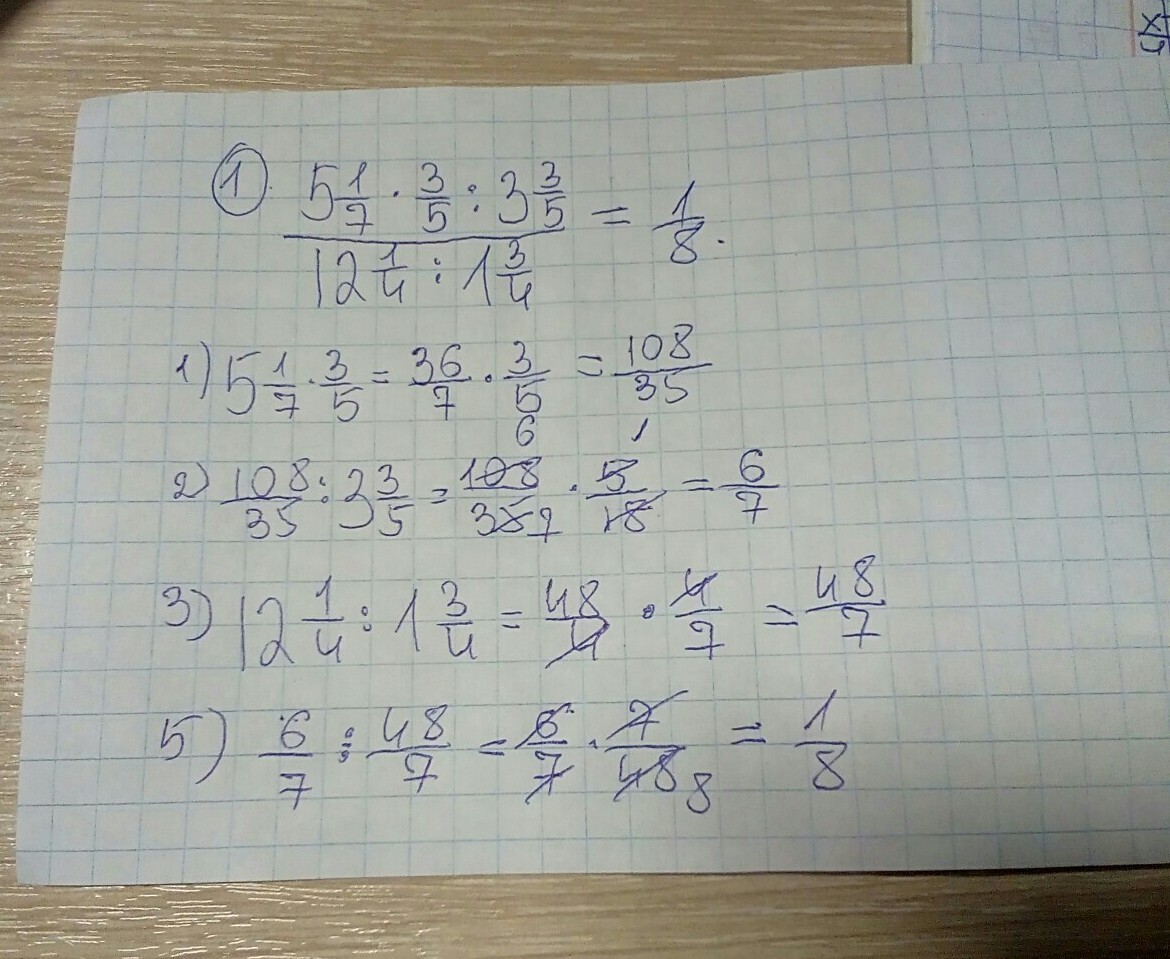 1. (5 1/7 · 3/5 : 3 3/5) / (12 1/4 : 1 3/4) = 1/8.
1) 5 1/7 · 3/5 = 36/7 · 3/5 = 108/35
2) 108/35 : 3 3/5 = 108/35 · 5/18 = 6/7
3) 12 1/4 : 1 3/4 = 48/4 · 4/7 = 48/7
5) 6/7 : 48/7 = 6/7 · 7/48 = 1/8